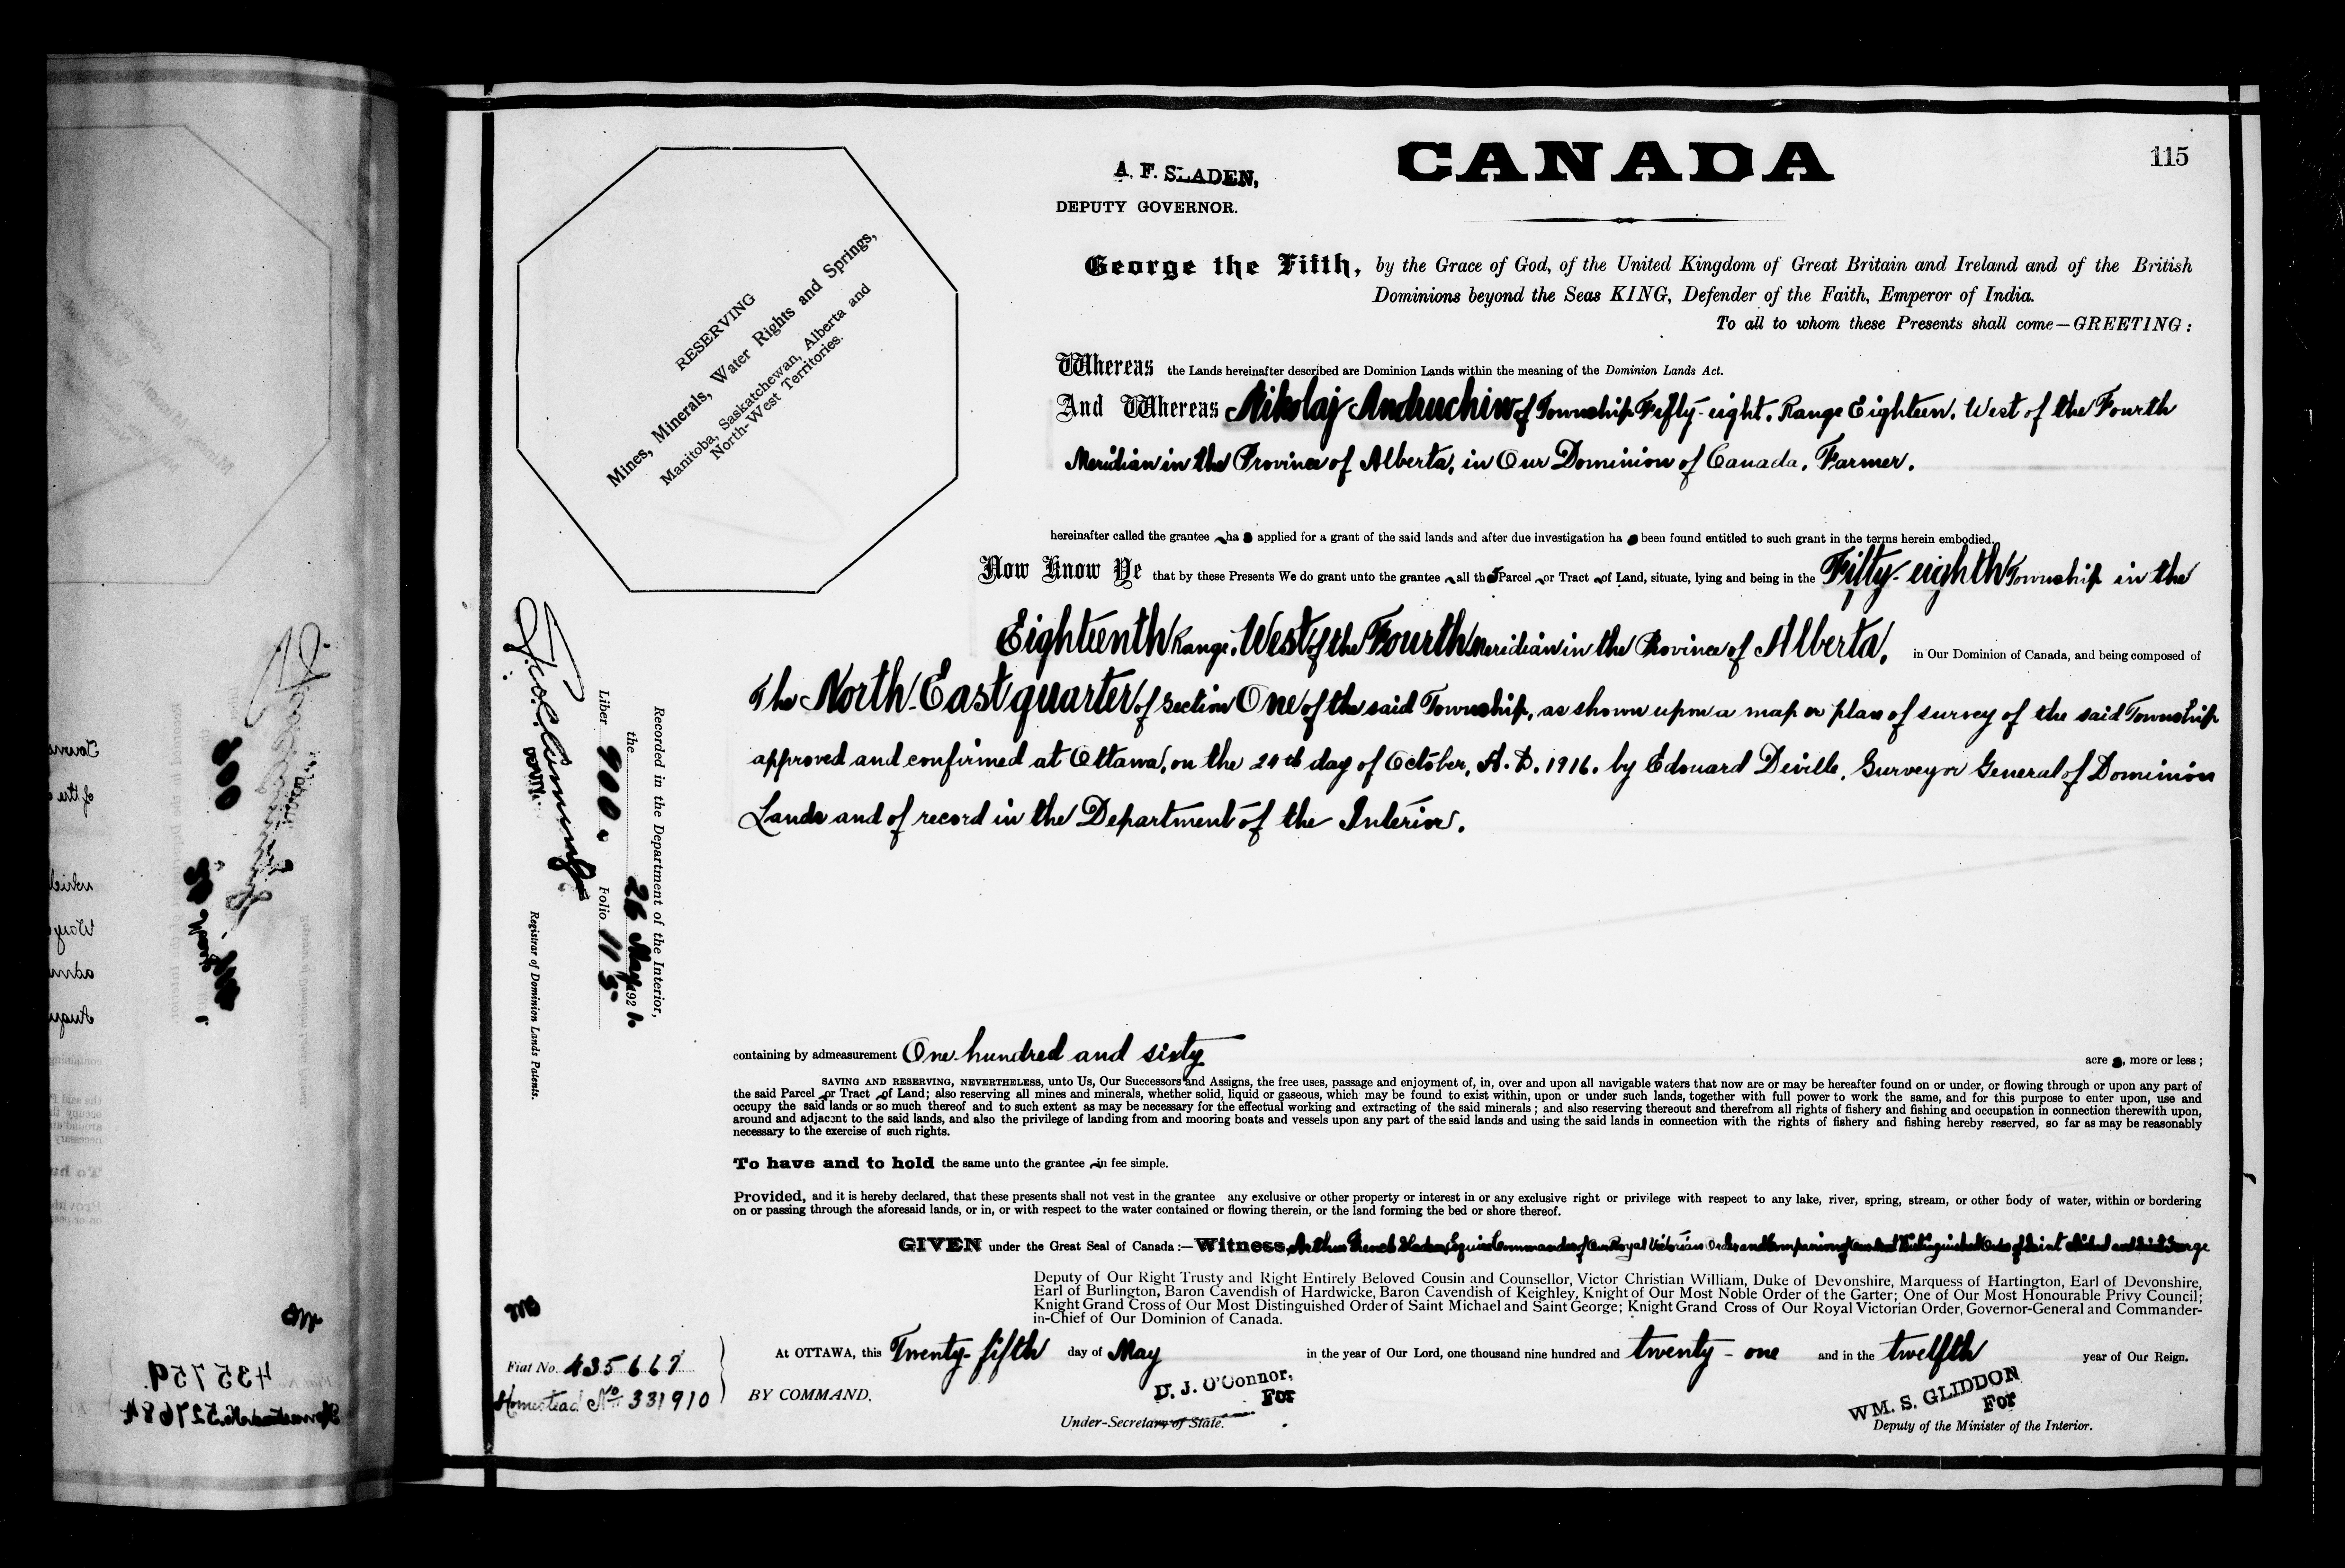 115
CANADA
A. F. SLADEN,
DEPUTY GOVERNOR.
RESERVING
Mines, Minerals, Water Rights and Springs,
Manitoba, Saskatchewan, Alberta and
North-West Territories.
George the Fifth, by the Grace of God, of the United Kingdom of Great Britain and Ireland and of the British
Dominions beyond the Seas KING, Defender of the Faith, Emperor of India.
To all to whom these Presents shall come—GREETING:
Whereas the Lands hereinafter described are Dominion Lands within the meaning of the Dominion Lands Act.
And Whereas Nikolaj Andruchiw of Township Fifty-eight, Range Eighteen, West of the Fourth
Meridian in the Province of Alberta, in Our Dominion of Canada, Farmer.
hereinafter called the grantee has applied for a grant of the said lands and after due investigation has been found entitled to such grant in the terms herein embodied.
Now Know Ye that by these Presents We do grant unto the grantee all that Parcel or Tract of Land, situate, lying and being in the Fifty-eighth Township in the
Eighteenth Range, West of the Fourth Meridian in the Province of Alberta, in Our Dominion of Canada, and being composed of
The North East quarter of Section One of the said Township, as shown upon a map or plan of survey of the said Township
approved and confirmed at Ottawa, on the day of October, A.D. 1916. by Edouard Deville, Surveyor General of Dominion
Lands and of record in the Department of the Interior.
Recorded in the Department of the Interior,
the 26 May 1921.
Liber 900. Folio 115
Registrar of Dominion Lands Patents.
containing by admeasurement One hundred and sixty acres, more or less;
SAVING AND RESERVING, NEVERTHELESS, unto Us, Our Successors and Assigns, the free uses, passage and enjoyment of, in, over and upon all navigable waters that now are or may be hereafter found on or under, or flowing through or upon any part of
the said Parcel or Tract of Land; also reserving all mines and minerals, whether solid, liquid or gaseous, which may be found to exist within, upon or under such lands, together with full power to work the same, and for this purpose to enter upon, use and
occupy the said lands or so much thereof and to such extent as may be necessary for the effectual working and extracting of the said minerals; and also reserving thereout and therefrom all rights of fishery and fishing and occupation in connection therewith upon,
around and adjacent to the said lands, and also the privilege of landing from and mooring boats and vessels upon any part of the said lands and using the said lands in connection with the rights of fishery and fishing hereby reserved, so far as may be reasonably
necessary to the exercise of such rights.
To have and to hold the same unto the grantee in fee simple.
Provided, and it is hereby declared, that these presents shall not vest in the grantee any exclusive or other property or interest in or any exclusive right or privilege with respect to any lake, river, spring, stream, or other body of water, within or bordering
on or passing through the aforesaid lands, or in, or with respect to the water contained or flowing therein, or the land forming the bed or shore thereof.
GIVEN under the Great Seal of Canada:—Witness, Arthur French Sladen, Esquire Commander of Our Royal Victorian Order and Companion of Our Most Distinguished Order of Saint Michael and Saint George
Deputy of Our Right Trusty and Right Entirely Beloved Cousin and Counsellor, Victor Christian William, Duke of Devonshire, Marquess of Hartington, Earl of Devonshire,
Earl of Burlington, Baron Cavendish of Hardwicke, Baron Cavendish of Keighley, Knight of Our Most Noble Order of the Garter; One of Our Most Honourable Privy Council;
Knight Grand Cross of Our Most Distinguished Order of Saint Michael and Saint George; Knight Grand Cross of Our Royal Victorian Order, Governor-General and Commander-
in-Chief of Our Dominion of Canada.
At OTTAWA, this Twenty-fifth day of May in the year of Our Lord, one thousand nine hundred and twenty-one and in the twelfth year of Our Reign.
Fiat No. 435667
Homestead No 331910
BY COMMAND,
D. J. O'Connor,
For
Under-Secretary of State.
WM. S. GLIDDON
For
Deputy of the Minister of the Interior.
435759